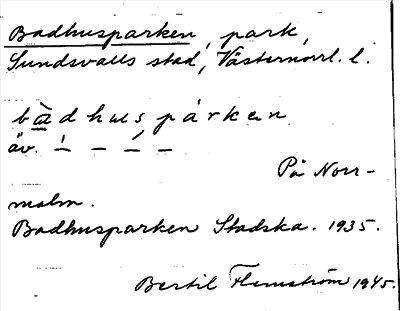 Badhusparken, park,
Sundsvalls stad, Västernorrl. l.
bàdhuspárken
äv. –́ – –́ –
På Norr-
malm.
Badhusparken Stadska. 1935.
Bertil Flemström 1945.